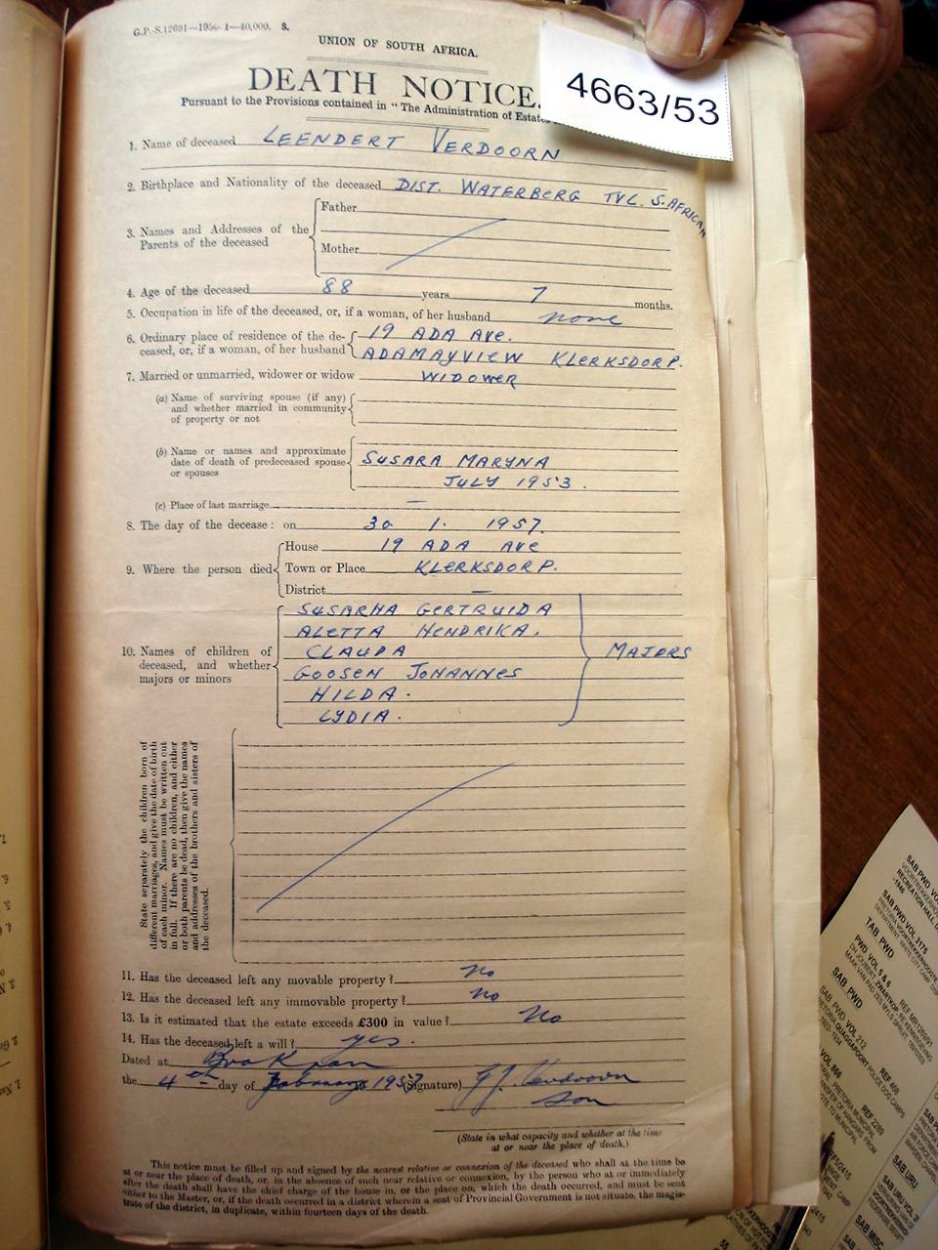 G.P.-S.12691—1956-1—40,000. S.
UNION OF SOUTH AFRICA.
DEATH NOTICE.
4663/53
Pursuant to the Provisions contained in "The Administration of Estates
1. Name of deceased LEENDERT VERDOORN
2. Birthplace and Nationality of the deceased DIST. WATERBERG TVL. S-AFRICAN
3. Names and Addresses of the Parents of the deceased
Father
Mother
4. Age of the deceased 88 years 7 months.
5. Occupation in life of the deceased, or, if a woman, of her husband none
6. Ordinary place of residence of the de- 19 ADA AVE.
ceased, or, if a woman, of her husband ADAMAYVIEW KLERKSDORP.
7. Married or unmarried, widower or widow WIDOWER
(a) Name of surviving spouse (if any)
and whether married in community
of property or not
(b) Name or names and approximate
date of death of predeceased spouse SUSARA MARYNA
or spouses JULY 1953.
(c) Place of last marriage —
8. The day of the decease: on 30 1. 1957.
9. Where the person died
House 19 ADA AVE
Town or Place KLERKSDORP.
District —
10. Names of children of
deceased, and whether
majors or minors
SUSARHA GERTRUIDA
ALETTA HENDRIKA.
CLAUDA
GOOSEN JOHANNES
HILDA.
LYDIA.
MAJORS
State separately the children born of
different marriages, and give the date of birth
of each minor. Names must be written out
in full. If there are no children, and either
or both parents be dead, then give the names
and addresses of the brothers and sisters of
the deceased.
11. Has the deceased left any movable property? no
12. Has the deceased left any immovable property? no
13. Is it estimated that the estate exceeds £300 in value? No
14. Has the deceased left a will? yes.
Dated at Brakpan
the 4th day of February 1957 (Signature) G.J. Verdoorn
son
(State in what capacity and whether at the time
at or near the place of death.)
This notice must be filled up and signed by the nearest relative or connexion of the deceased who shall at the time be
at or near the place of death, or, in the absence of such near relative or connexion, by the person who at or immediately
after the death shall have the chief charge of the house in, or the place on, which the death occurred, and must be sent
either to the Master, or, if the death occurred in a district wherein a seat of Provincial Government is not situate, the magis-
trate of the district, in duplicate, within fourteen days of the death.
SAB PWD VOL 3175
TAB, PWD
PWD VOL 5 & 6
SAB, PWD
PWD VOL 212
REF 455
REF 2280
SAB URU
SAB MISC